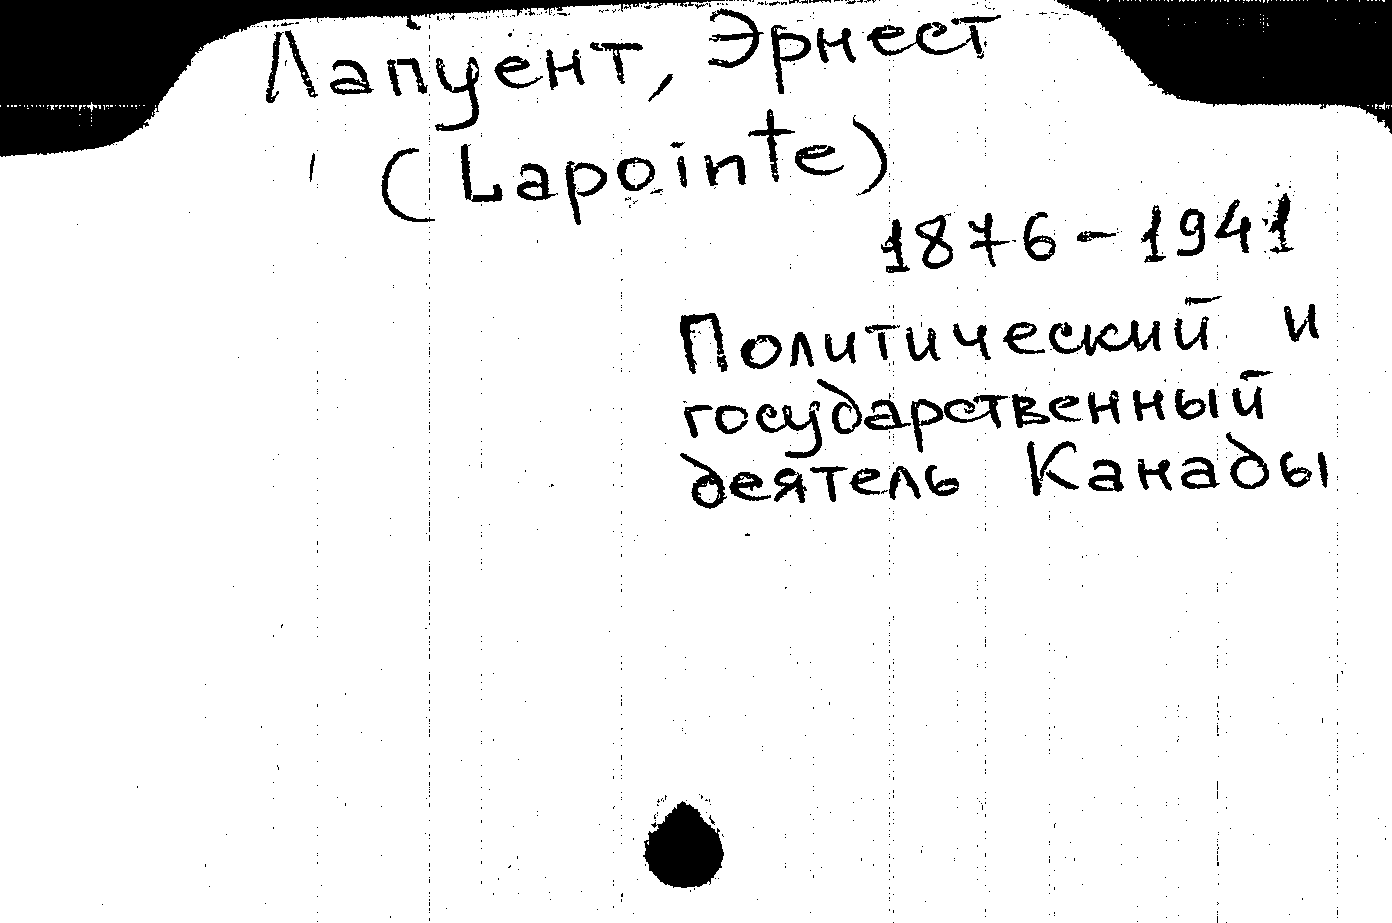 Лапуент, Эрнест
(Lapointe)
1876-1941
Политический и
государственный
деятель Канады